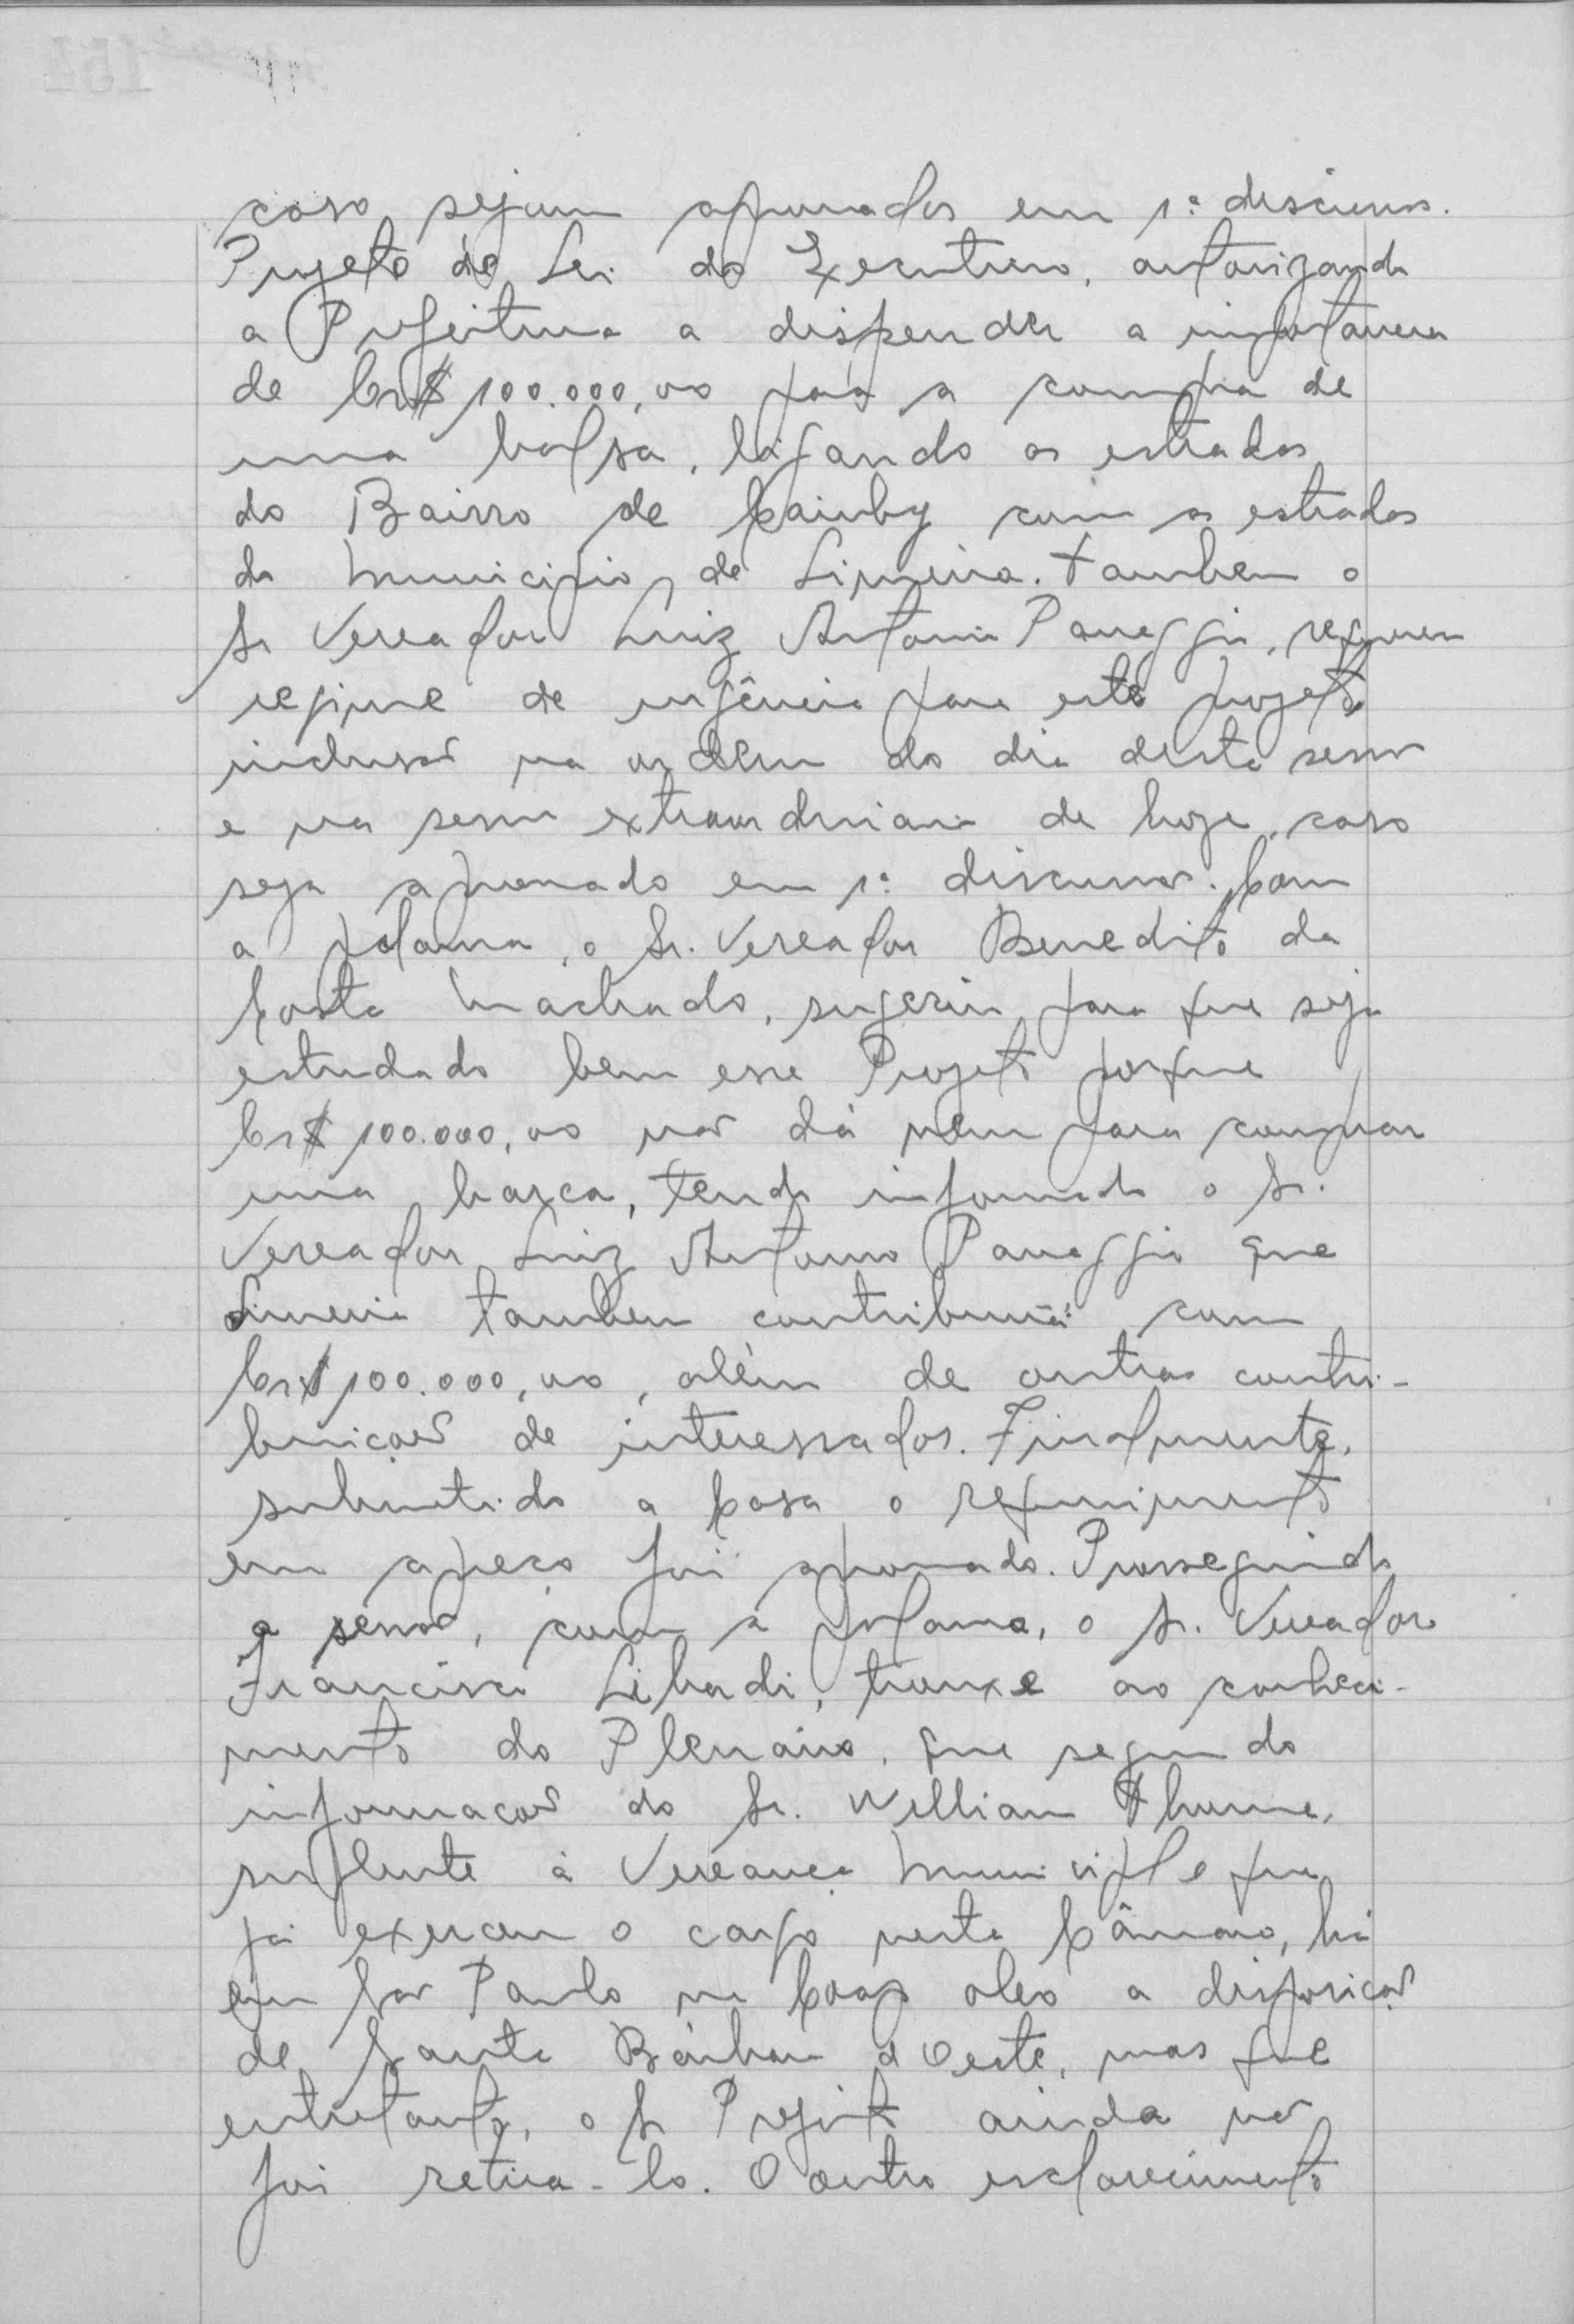 caso sejam aprovados em 1ª discussão.
Projeto de Lei do Executivo, autorizando
a Prefeitura a dispender a importancia
de Cr$ 100.000,00 para a compra de
uma balsa, ligando as estradas
do Bairro de Cainby com as estradas
do Municipio de Limeira. Tambem o
Sr Vereador Luiz Antonio Panaggio, requereu
regime de urgência para este projeto
inclusão na ordem do dia desta sessão
e na sessão extraordinaria de hoje, caso
seja aprovado em 1ª discussão. Com
a palavra, o Sr. Vereador Benedito da
Costa Machado, sugeriu para que seja
estudado bem esse Projeto porque
Cr$ 100.000,00 não dá nem para comprar
uma barca, tendo informado o Sr.
Vereador Luiz Antonio Panaggio que
Limeira tambem contribuirá com
Cr$ 100.000,00, além de outras contri-
buiçoes de interessados. Finalmente,
submetido a Casa o requerimento
em apreço foi aprovado. Prosseguindo
a sessão, com a palavra, o Sr. Vereador
Francisco Libardi, trouxe ao conheci-
mento do Plenário, que segundo
informacão do Sr. Willian Thume,
suplente à Vereança Municipal e que
já exerceu o cargo nesta Câmara, há
em São Paulo na oleo a disposição
de Santa Bárbara d'Oeste, mas que
entretanto, o Sr Prefeito ainda não
foi retira-lo. O outro esclarecimento